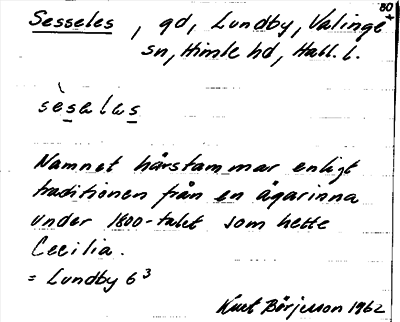 80
Sesseles, gd, Lundby, Valinge
sn, Himle hd, Hall. l.
sèselas
Namnet härstammar enligt
traditionen från en ägarinna
under 1800-talet som hette
Cecilia.
= Lundby 6³
Kurt Börjesson 1962